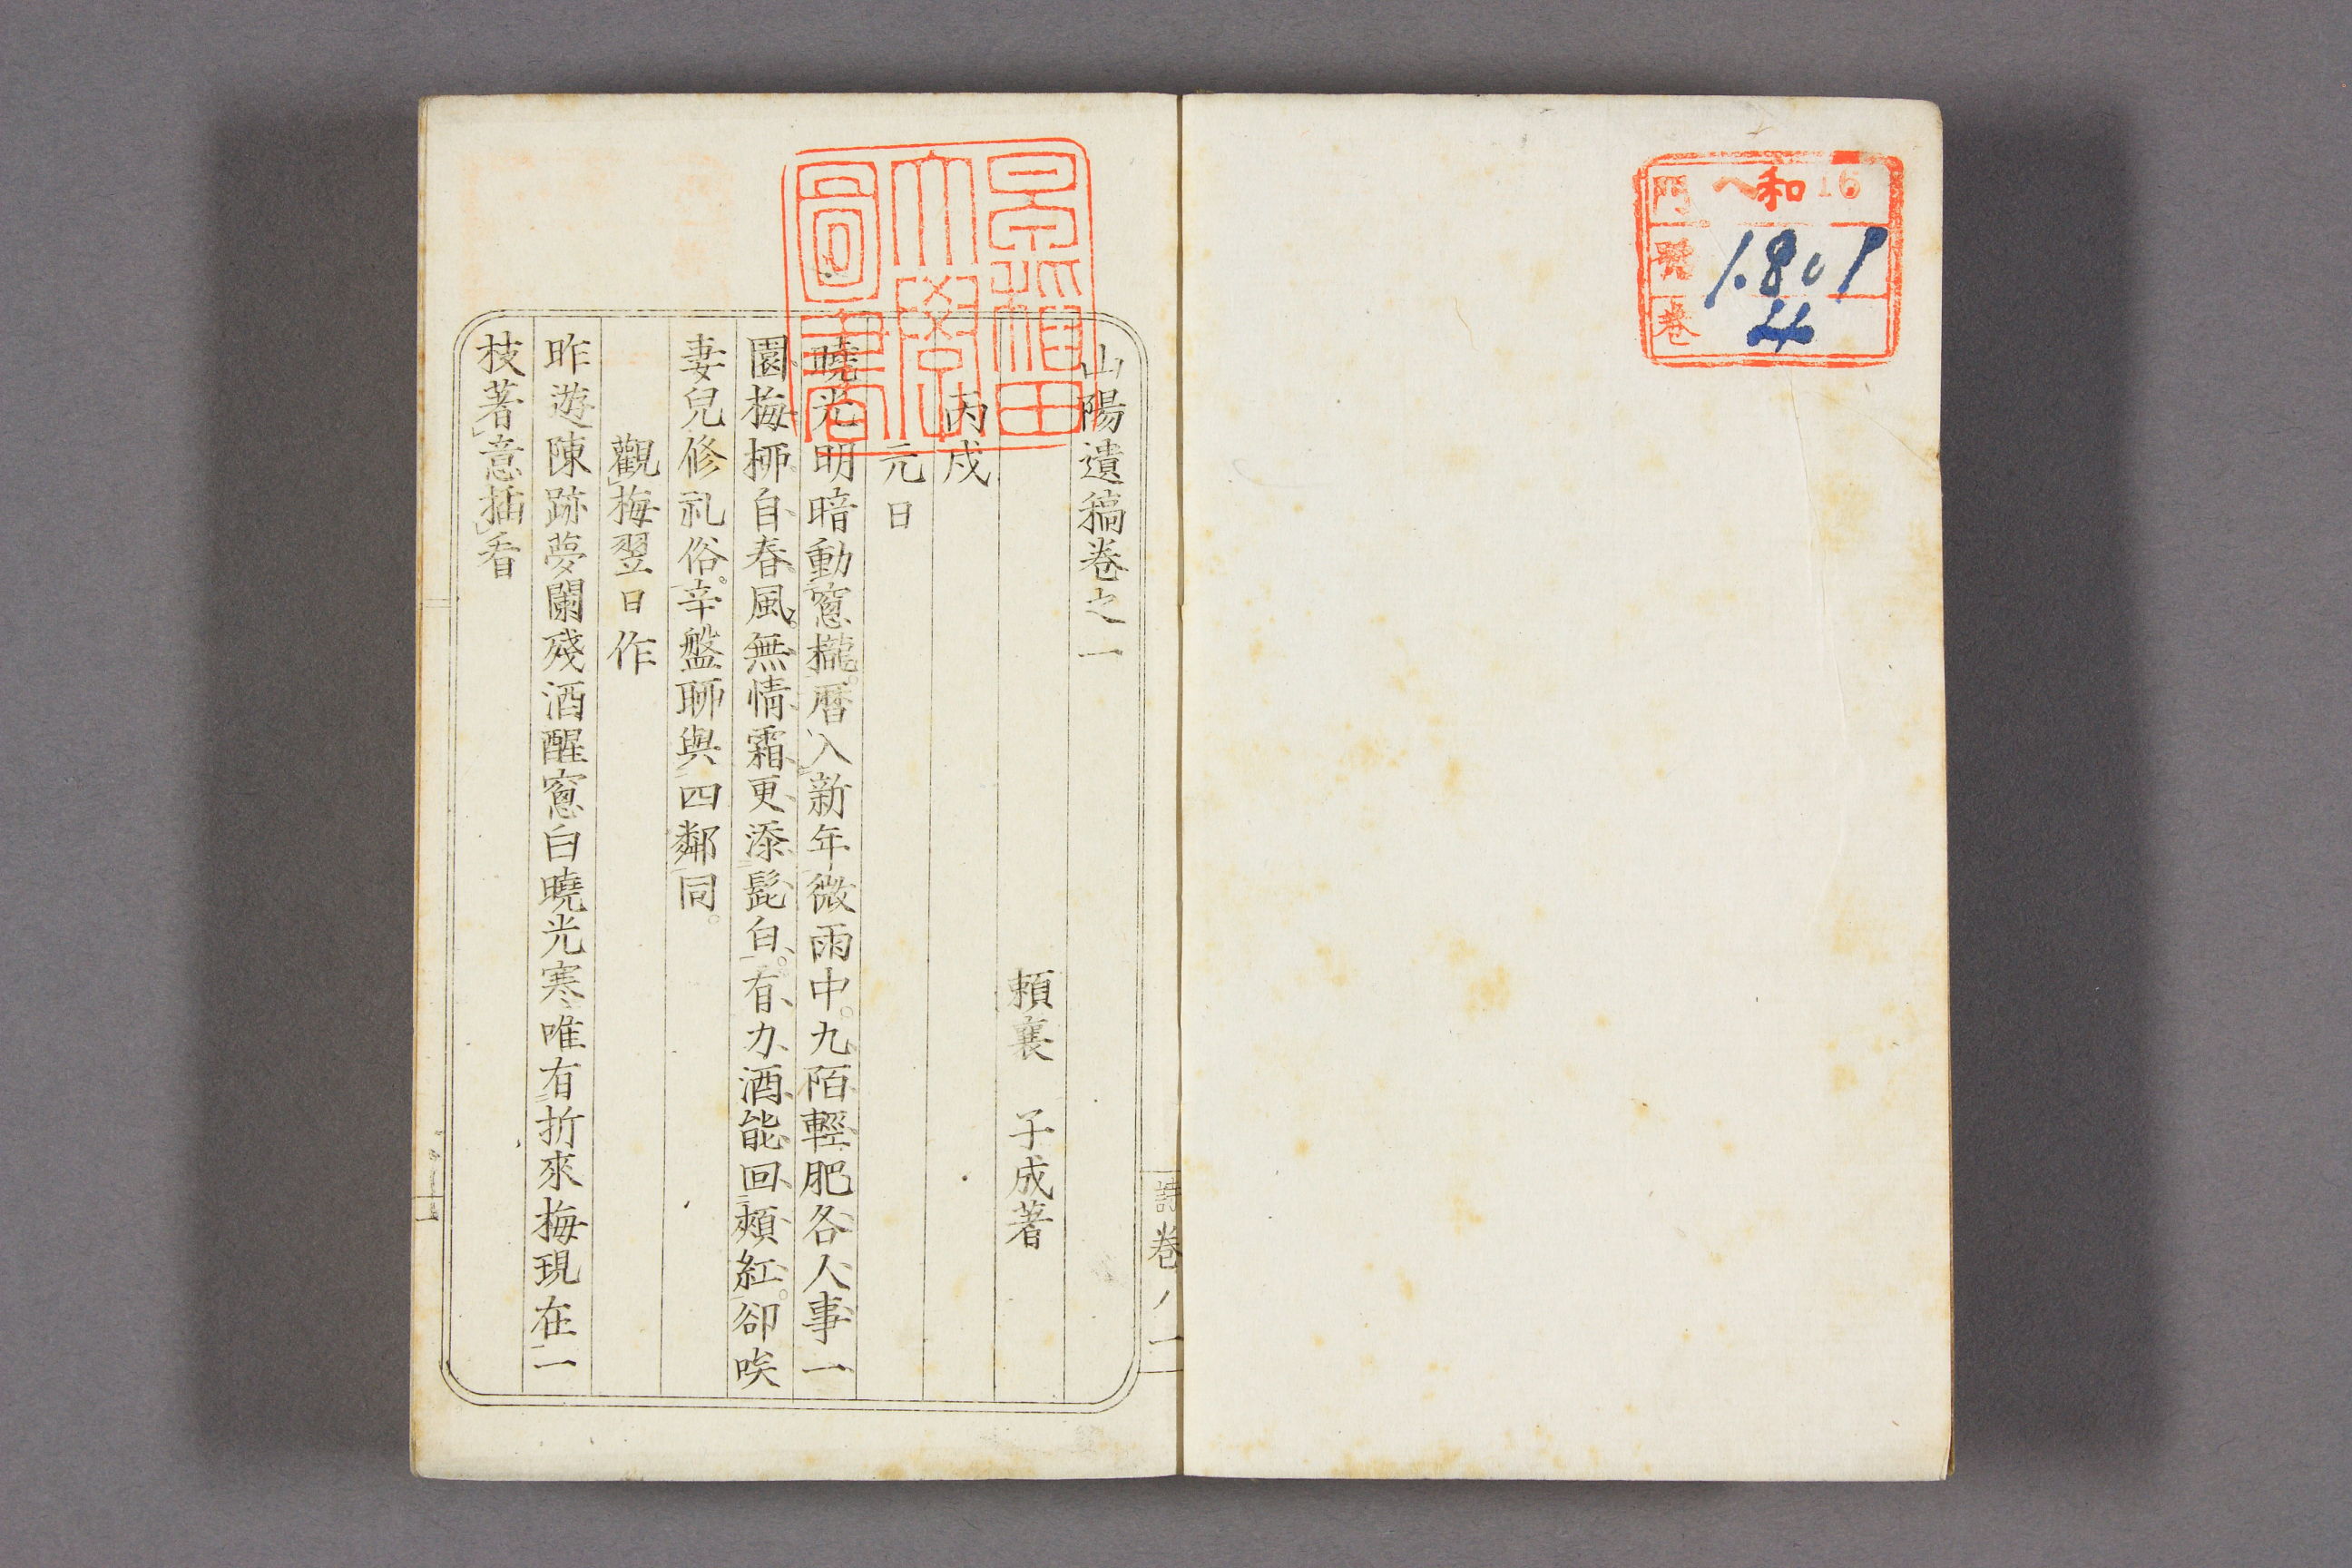 門 ヘ和16
號 1.801
巻 4
早稲田大學圖書
詩巻ノ一
山陽遺稿巻之一
頼襄 子成著
丙戌
元日
曉光明暗動窓櫳。暦入新年微雨中。九陌輕肥各人事一
園梅柳自春風。無情霜更添髭白。有力酒能回頰紅。卻咲
妻兒修礼俗。辛盤聊與四鄰同。
觀梅翌日作
昨遊陳跡夢闌殘酒醒窓白曉光寒唯有折來梅現在一
枝著意插看